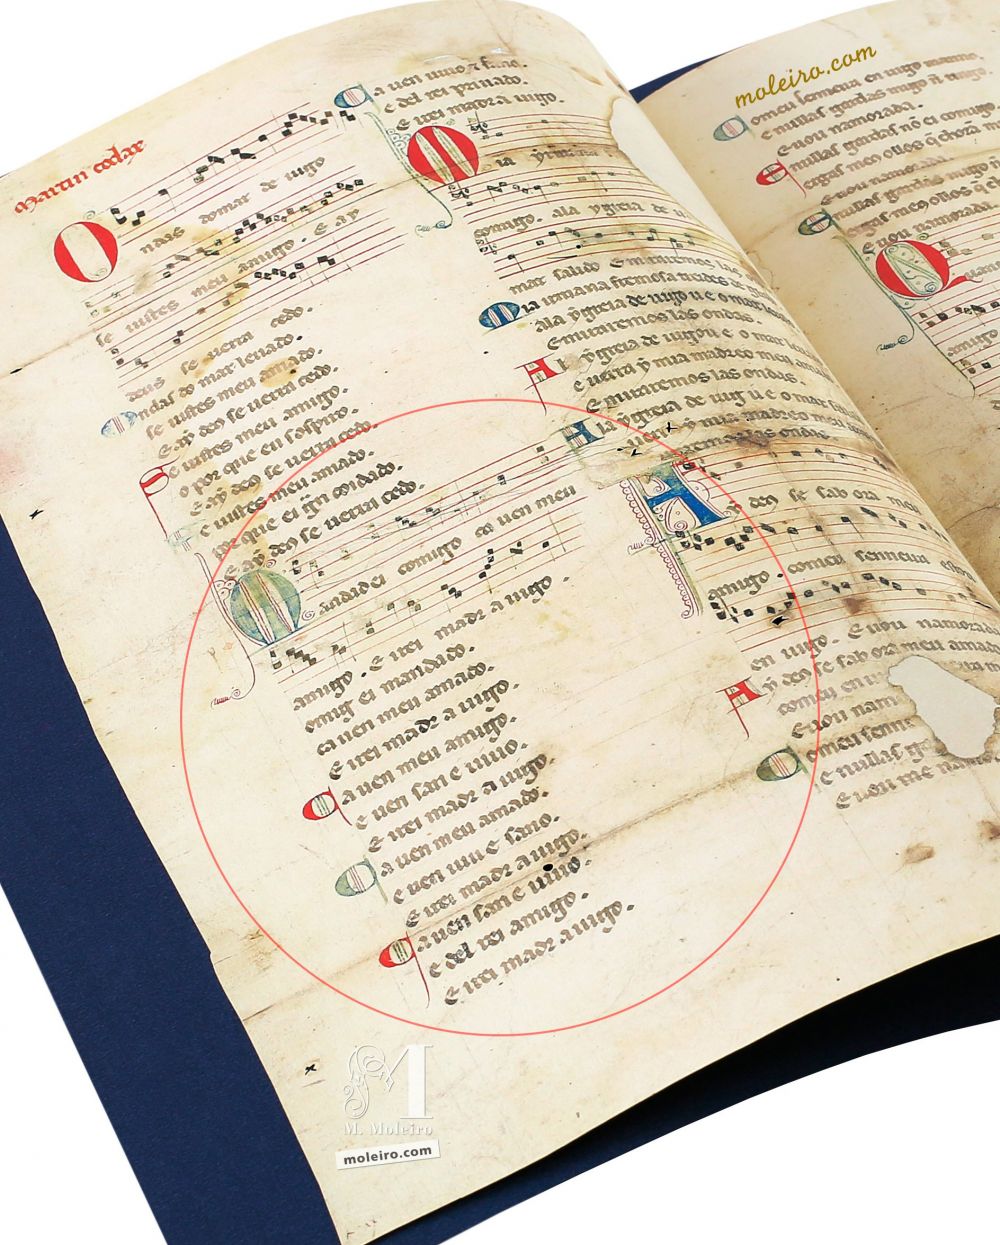 Martin codax
Ondas do mar de uigo
se uistes meu amigo. E ay
deus se uerra cedo.
Ondas do mar leuado.
se uistes meu amado.
E ay deus se uerra cedo.
Se uistes meu amigo.
o por que eu sospiro.
E ay deus se uerra cedo.
Se uistes meu amado.
por que ei gran coidado.
E ay deus se uerra cedo.
Mandadei comigo ca uen meu
amigo. E irei madr a uigo.
Comig ei mandado.
ca uen meu amado.
E irei madr a uigo.
Ca uen meu amigo.
e uen san e uiuo.
E irei madr a uigo.
Ca uen meu amado.
e uen uiu e sano.
E irei madr a uigo.
Ca uen san e uiuo.
e del rei amigo.
E irei madr a uigo.
Ca uen uiuo e sano.
e del rei priuado.
E irei madr a uigo.
Mia yrmana
comigo. ala ygreia de u
mar salido E miraremos las
Mia irmana fremosa treides de
ala ygreia de uigo u e o mar
E miraremos las ondas.
A la ygreia de uigo u e o mar
e uerra y mia madre o meu
E miraremos las ondas.
A la ygreia de uig u e o mar
e uerra y mia madre o meu
Ay deus se sab ora meu
amigo. com eu senneira estou
en uigo. E uou namorada
Ay deus se sab ora meu amado
com eu en
E uou nam
Com eu senne
e nullas
E uou
Com eu senneira en uigo
e nullas gardas migo
E uou namorada.
E nullas gardas non ei comigo
ergas meus ollos que choran
E uou namorada.
E nullas gardas migo
ergas meus ollos que
E uou namorada.
Quan
amigo
moleiro.com
M
M. Moleiro
moleiro.com